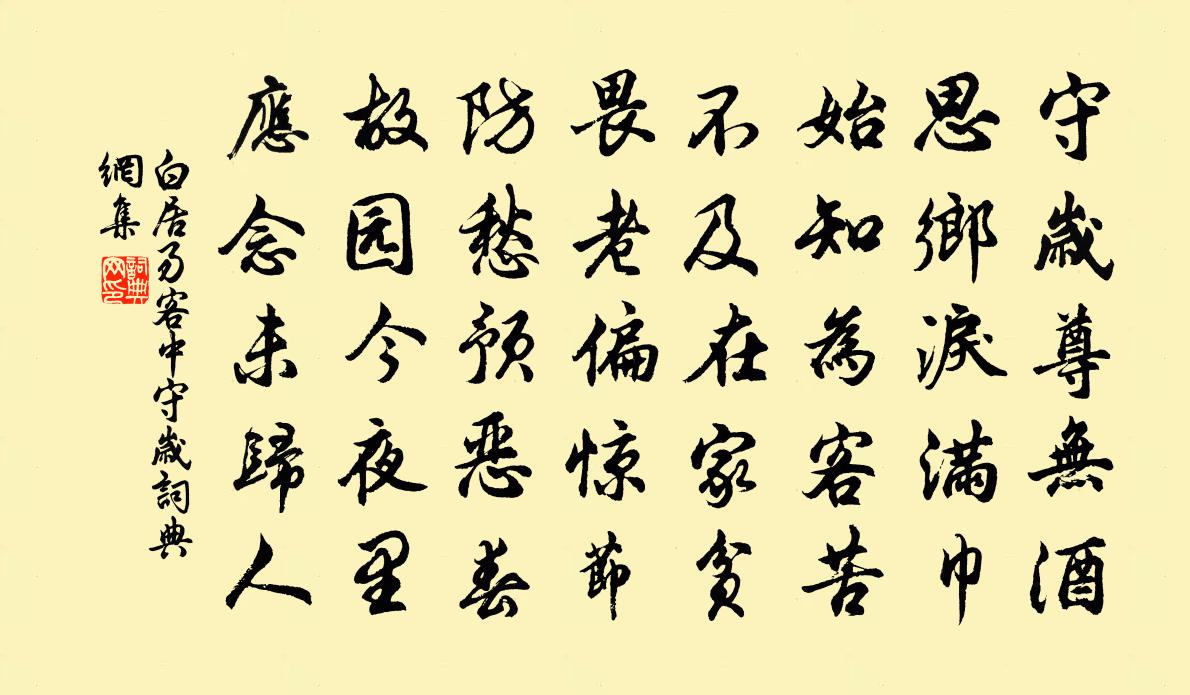 守歲尊無酒
思鄉淚滿巾
始知為客苦
不及在家貧
畏老偏惊節
防愁預恶春
故园今夜里
應念未歸人
白居易客中守歲詞典
網集
詞典
网印